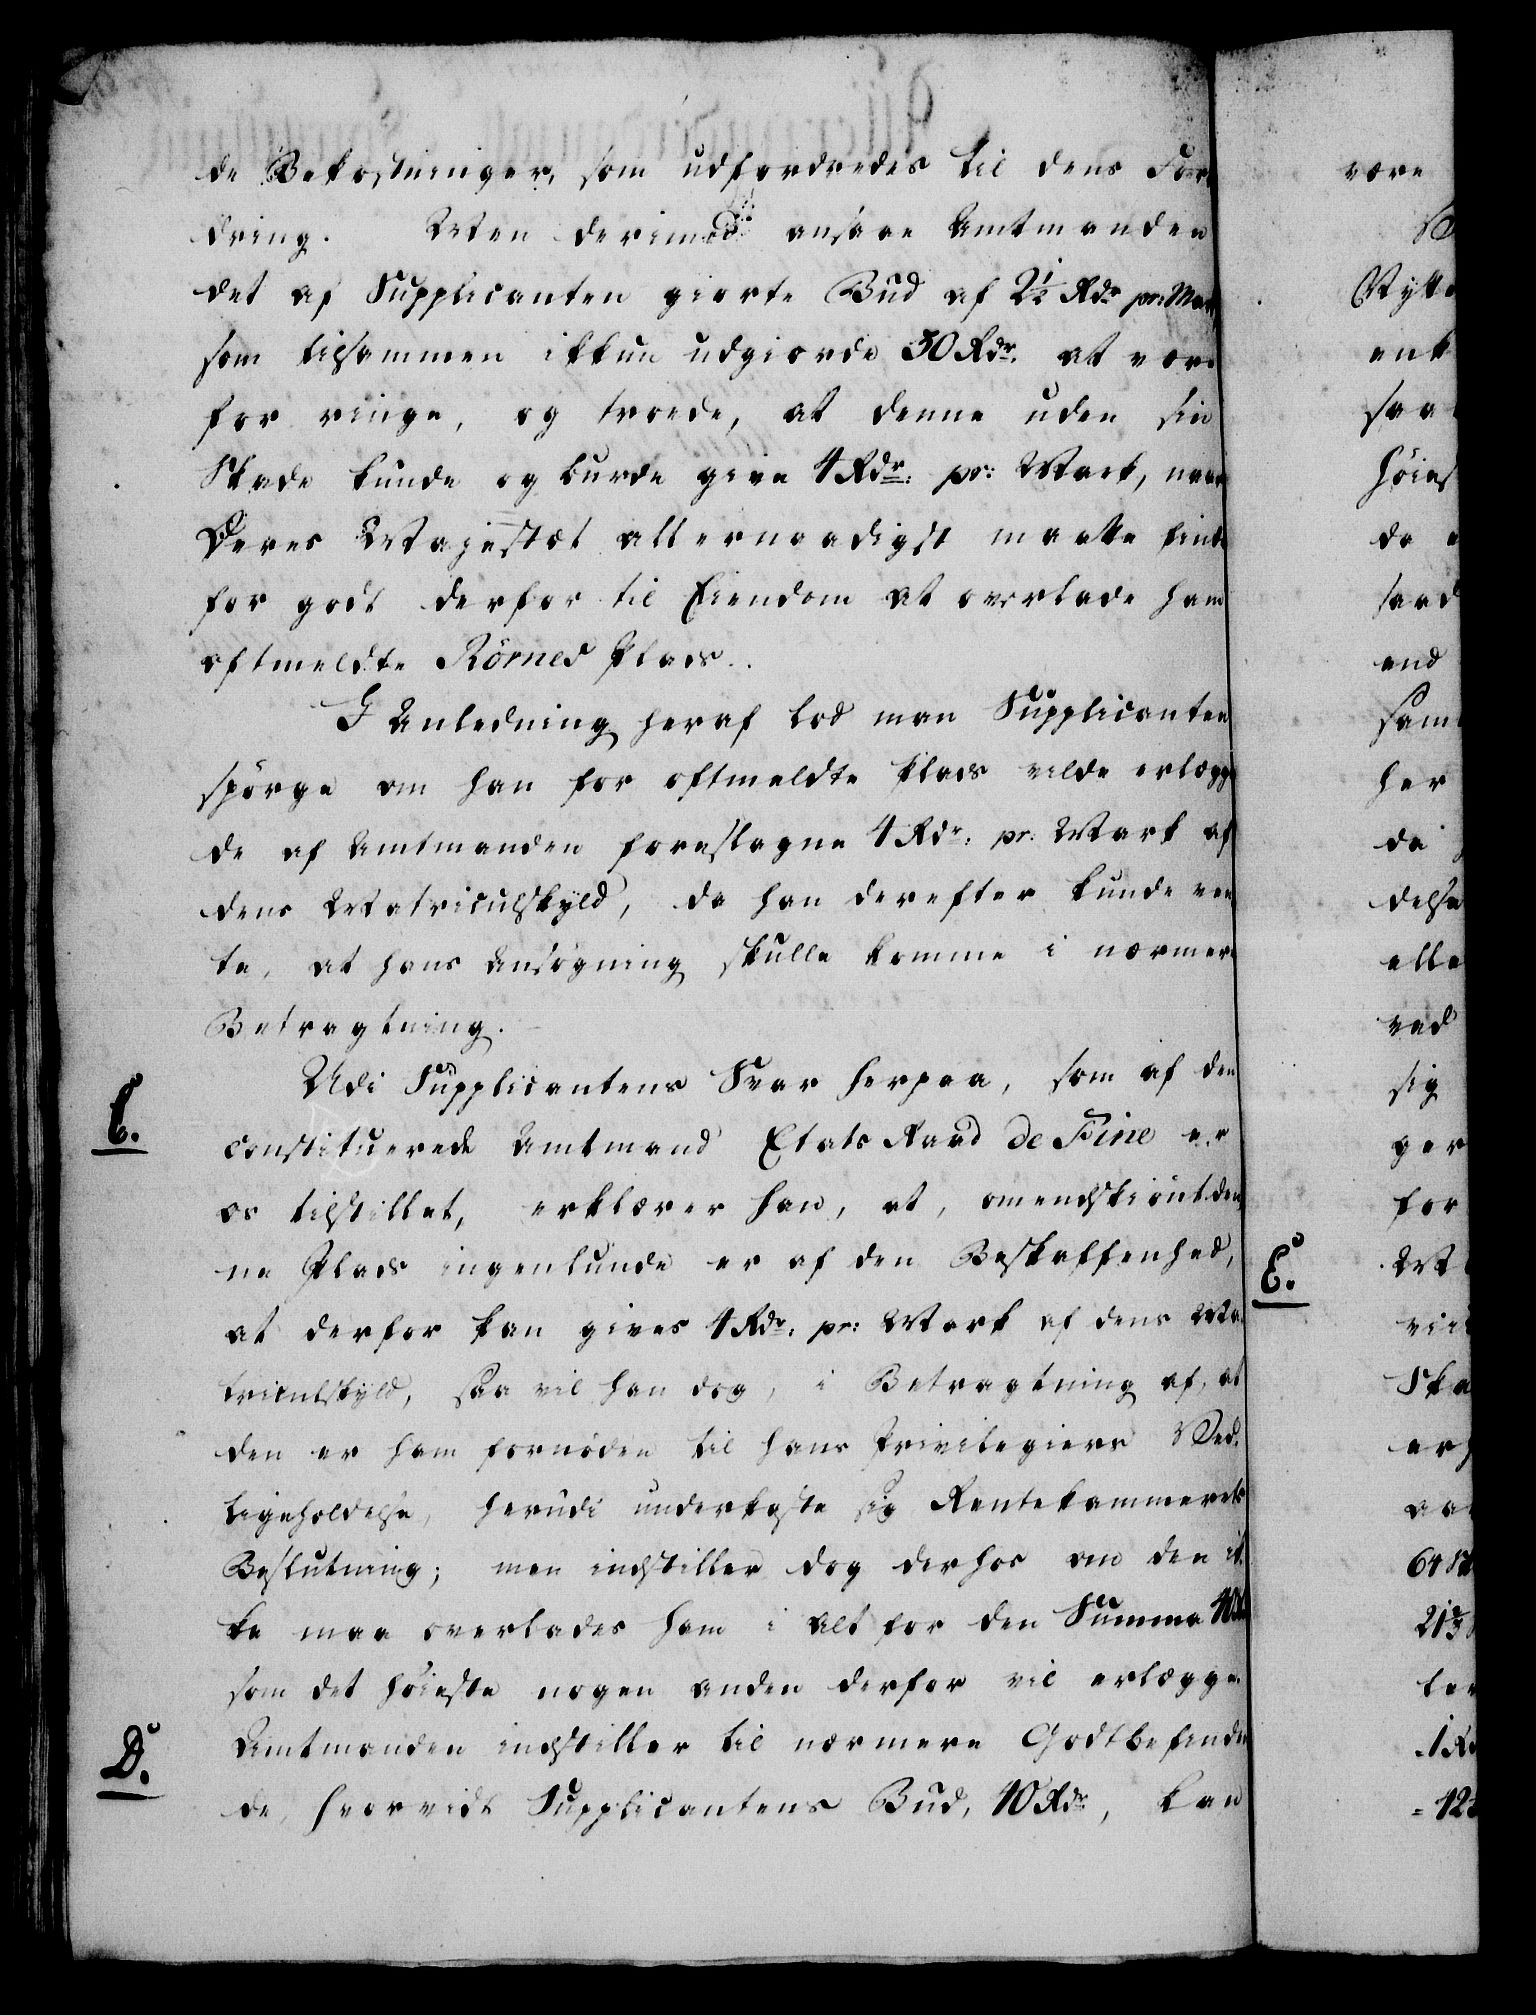 de Bekostninger, som udfordredes til dens For¬
dring. Men derimod ansaae Amtmanden
det af Supplicanten giorte Bud af 2½ Rdr pr: Mark
som tilsammen ikkun udgiorde 30 Rdr. at være
for ringe, og troede, at denne uden sin
Skade kunde og burde give 4 Rdr. pr: Mark, naar
Deres Majestæt allernaadigst maatte finde
for godt derfor til Eiendom at overlade ham
oftmeldte Rörnes Plads.
I Anledning heraf lod man Supplicanten
spørge om han for oftmeldte Plads vilde erlægge
de af Amtmanden foreslagne 4 Rdr. pr. Mark af
dens Matriculskyld, da han derefter kunde ven
te, at hans Ansøgning skulle komme i nærmere
Betragtning.
C. Udi Supplicantens Svar herpaa, som af den
constituerede Amtmand Etats Raad de Fine er
os tilstillet, erklærer han, at, omendskiøntden
ne Plads ingenlunde er af den Beskaffenhed,
at derfor kan gives 4 Rdr. pr: Mark af dens Ma
triculskyld, saa vil han dog, i Betragtning af, at
den er ham fornøden til hans Privilegiers Ved¬
ligeholdelse, herudi underkaste sig Rentekammerets
Beslutning; men indstiller dog derhos om den ik
ke maa overlades ham i alt for den Summa 40 Rdr
som det høieste nogen anden derfor vil erlægge.
D. Amtmanden indstiller til nærmere Godtbefinden
de, hvorvidt Supplicantens Bud, 40 Rdr, kan
være
enk
saa
høies
da
saad
and
sam
her
de
delse
elle
ved
sig
ger
for
E. M
Ska
64 Sk
ler
1 Rd